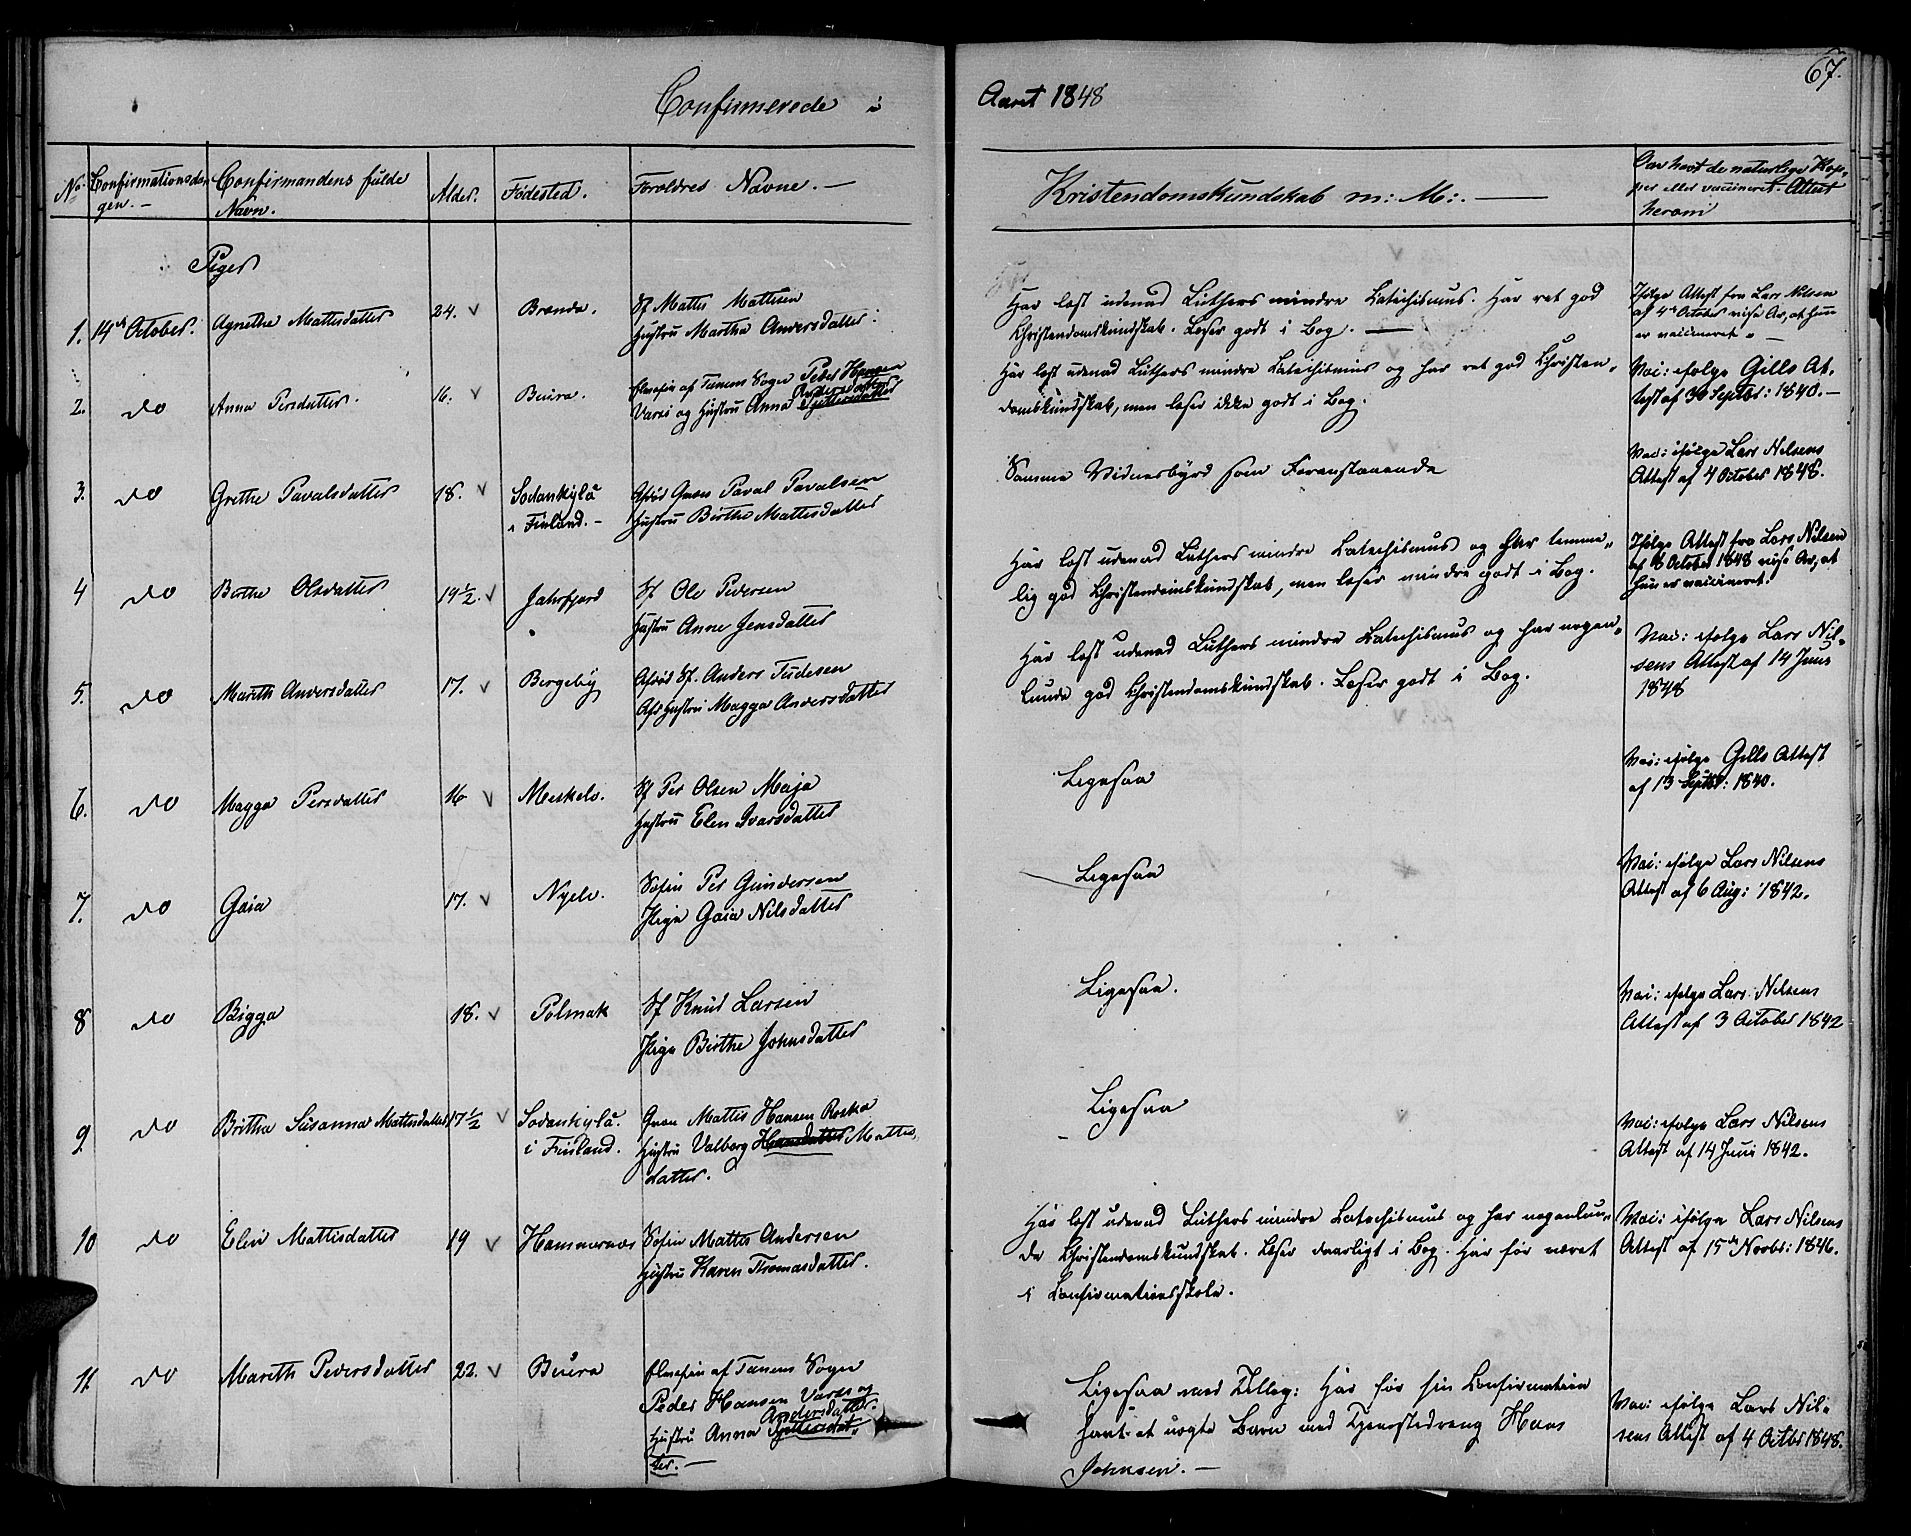 67.
Confirmerede i Aaret 1848
No
Confirmationsda-
gen. -
Confirmandens fulde
Navn.
Alder.
Fødested.
Forældres Navne. -
Kristendomskundskab m: M:. -
Har havt de naturlige Kop-
per eller vaccineret. Attest
herom
Piger
1. 14de October. Agnethe Mattisdatter 24. Brænda.
Sf Mattis Mattisen
Hustru Martha Andersdatter.
Har læst udenad Luthers mindre Catechismus. Har ret god
Christendomskundskab. Læser godt i Bog. -
Ifølge Attest fra Lars Nilsen
af 4de October vise Ar, at hun
er vaccineret. -
2. do Anna Persdatter. 16. Beura.
Elvefin af Tanens Sogn Peder Hansen
Vares og Hustru Anna Andersdatter
Har læst udenad Luthers mindre Catechismus og har ret god Christen-
domskundskab, men læser ikke godt i Bog.
Vac: ifølge Gills At-
test af 30 Septbr: 1840. -
3. do Grethe Pavalsdatter 18. Sodankylä
i Finland. -
Afdød Qvæn Paval Pavalsen
Hustru Birthe Mattisdatter
Samme Vidnesbyrd som Foranstaaende
Vac: ifølge Lars Nilsens
Attest af 4 October 1848.
4 do Birthe Olsdatter 19½. Jahrfjord
Sf Ole Pedersen
Hustru Anne Jensdatter
Har læst udenad Luthers mindre Catechismus og har temme-
lig god Christendomskundskab, men læser mindre godt i Bog.
Ifølge Attest fra Lars Nilsen
af 8 October 1848 vise Ar, at
hun er vaccineret.
5. do Marith Andersdatter 17. Bergeby
Afdød Sf. Anders Fudesen
Afd Hustru Magga Andersdatter
Har læst udenad Luthers mindre Catechismus og har nogen-
lunde god Christendomskundskab. Læser godt i Bog.
Vac: ifølge Lars Nil-
sens Attest af 14 Juni
1848
6. do Magga Persdatter 16 Meskelv.
Sf Per Olsen Maja
Hustru Elen Ivarsdatter
Ligesaa
Vac: ifølge Gills Attest
af 13 Septbr: 1840.
7. do Gaia 17. Nyelv.
Søfin Per Gundersen
Pige Gaia Nilsdatter
Ligesaa
Vac: ifølge Lars Nilsens
Attest af 6 Aug: 1842.
8 do Bigga 18. Polmak
Sf Knud Larsen
Pige Birthe Johnsdatter
Ligesaa.
Vac: ifølge Lars Nilsens
Attest af 3 October 1842
9. do Britha Susanna Mattisdatter 17½ Sodankylä.
i Finland.
Qvæn Mattis Hansen Roska
Hustru Valborg Hansdatter Mattis-
datter.
Ligesaa
Vac: ifølge Lars Nilsens
Attest af 14 Juni 1842.
10 do Elin Mattisdatter 19 Hammernæs
Søfin Mattis Andersen
Hustru Karen Thomasdatter.
Har læst udenad Luthers mindre Catechismus og har nogenlun-
de Christendomskundskab. Læser daarligt i Bog. Har før været
i Confirmationsskole.
Vac: ifølge Lars Nilsens
Attest af 15de Novbr: 1846.
11 do Marith Pedersdatter 22. Beura
Elvefin af Tanens Sogn
Peder Hansen Vares og
Hustru Anna Andersdatter.
Ligesaa med Tillæg: Har før sin Confirmation
havt et uægte Barn med Tjenestedreng Hans
Johnsen. -
Vac: ifølge Lars Nil-
sens Attest af 4 Octbr 1848.